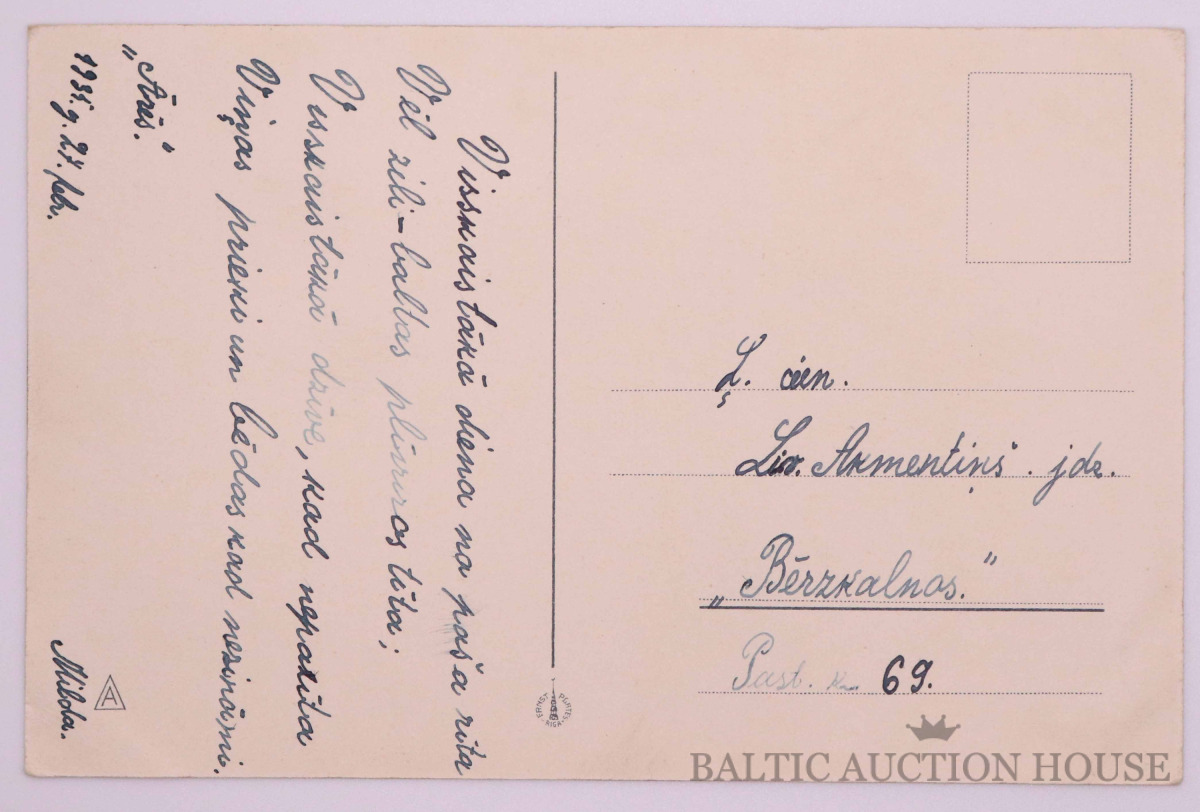 Visskaistākā diena no paša rīta
Vēl zili-baltas plīvuros tīta;
Visskaistākā dzīve, kad nepazīta
Viņas prieki un bēdas kad nezināmi.
"Ārēs."
1935.g. 27. febr.
Milda.
A
ERNST PLATES RIGA
Ļ. cien.
Liv. Akmentiņš. jdz.
„Bērzkalnos."
Past. k. 69.
BALTIC AUCTION HOUSE